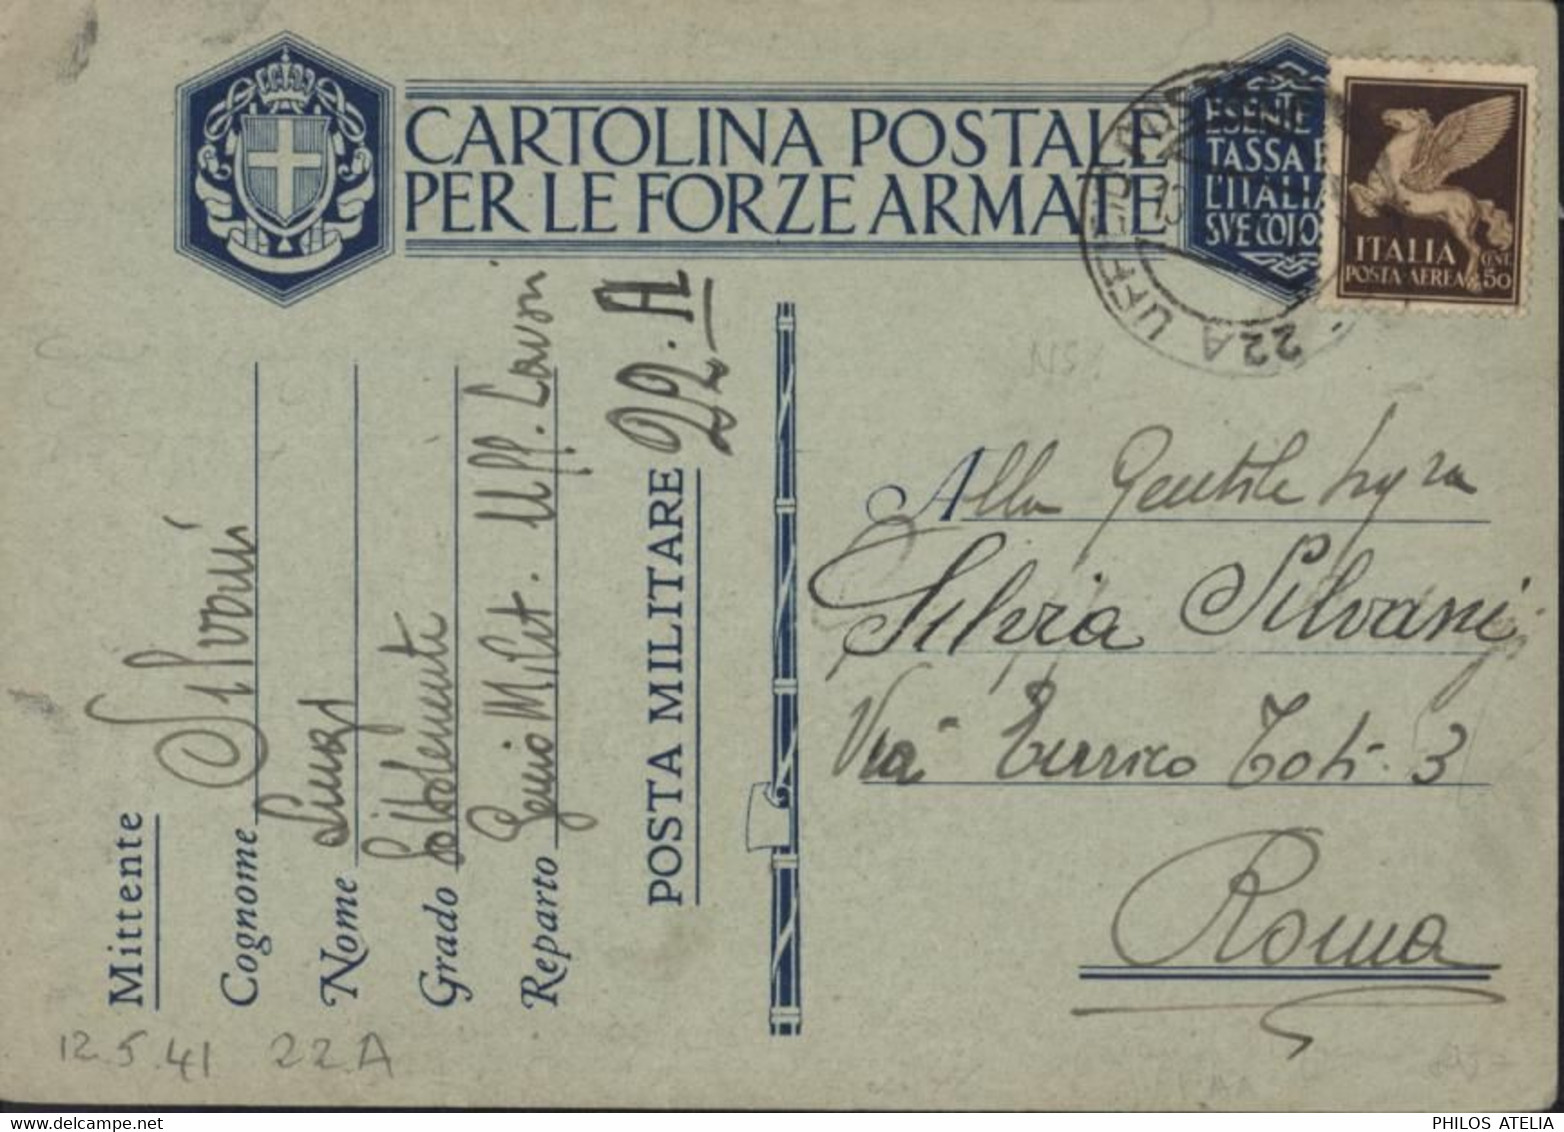 CARTOLINA POSTALE
PER LE FORZE ARMATE
ESENTE
TASSA
L'ITALIA
SVE COLO
ITALIA
POSTA AEREA
CENT. 50
22A UFF
Mittente
Cognome Silvani
Nome Luigi
Grado Sottotenente
Reparto Genio Milit. Uff. Lavori
POSTA MILITARE 22.A
Alla Gentile
Silvia Silvani
Via Enrico Toti - 3
Roma
12.5.41 22A
PHILOS ATELIA